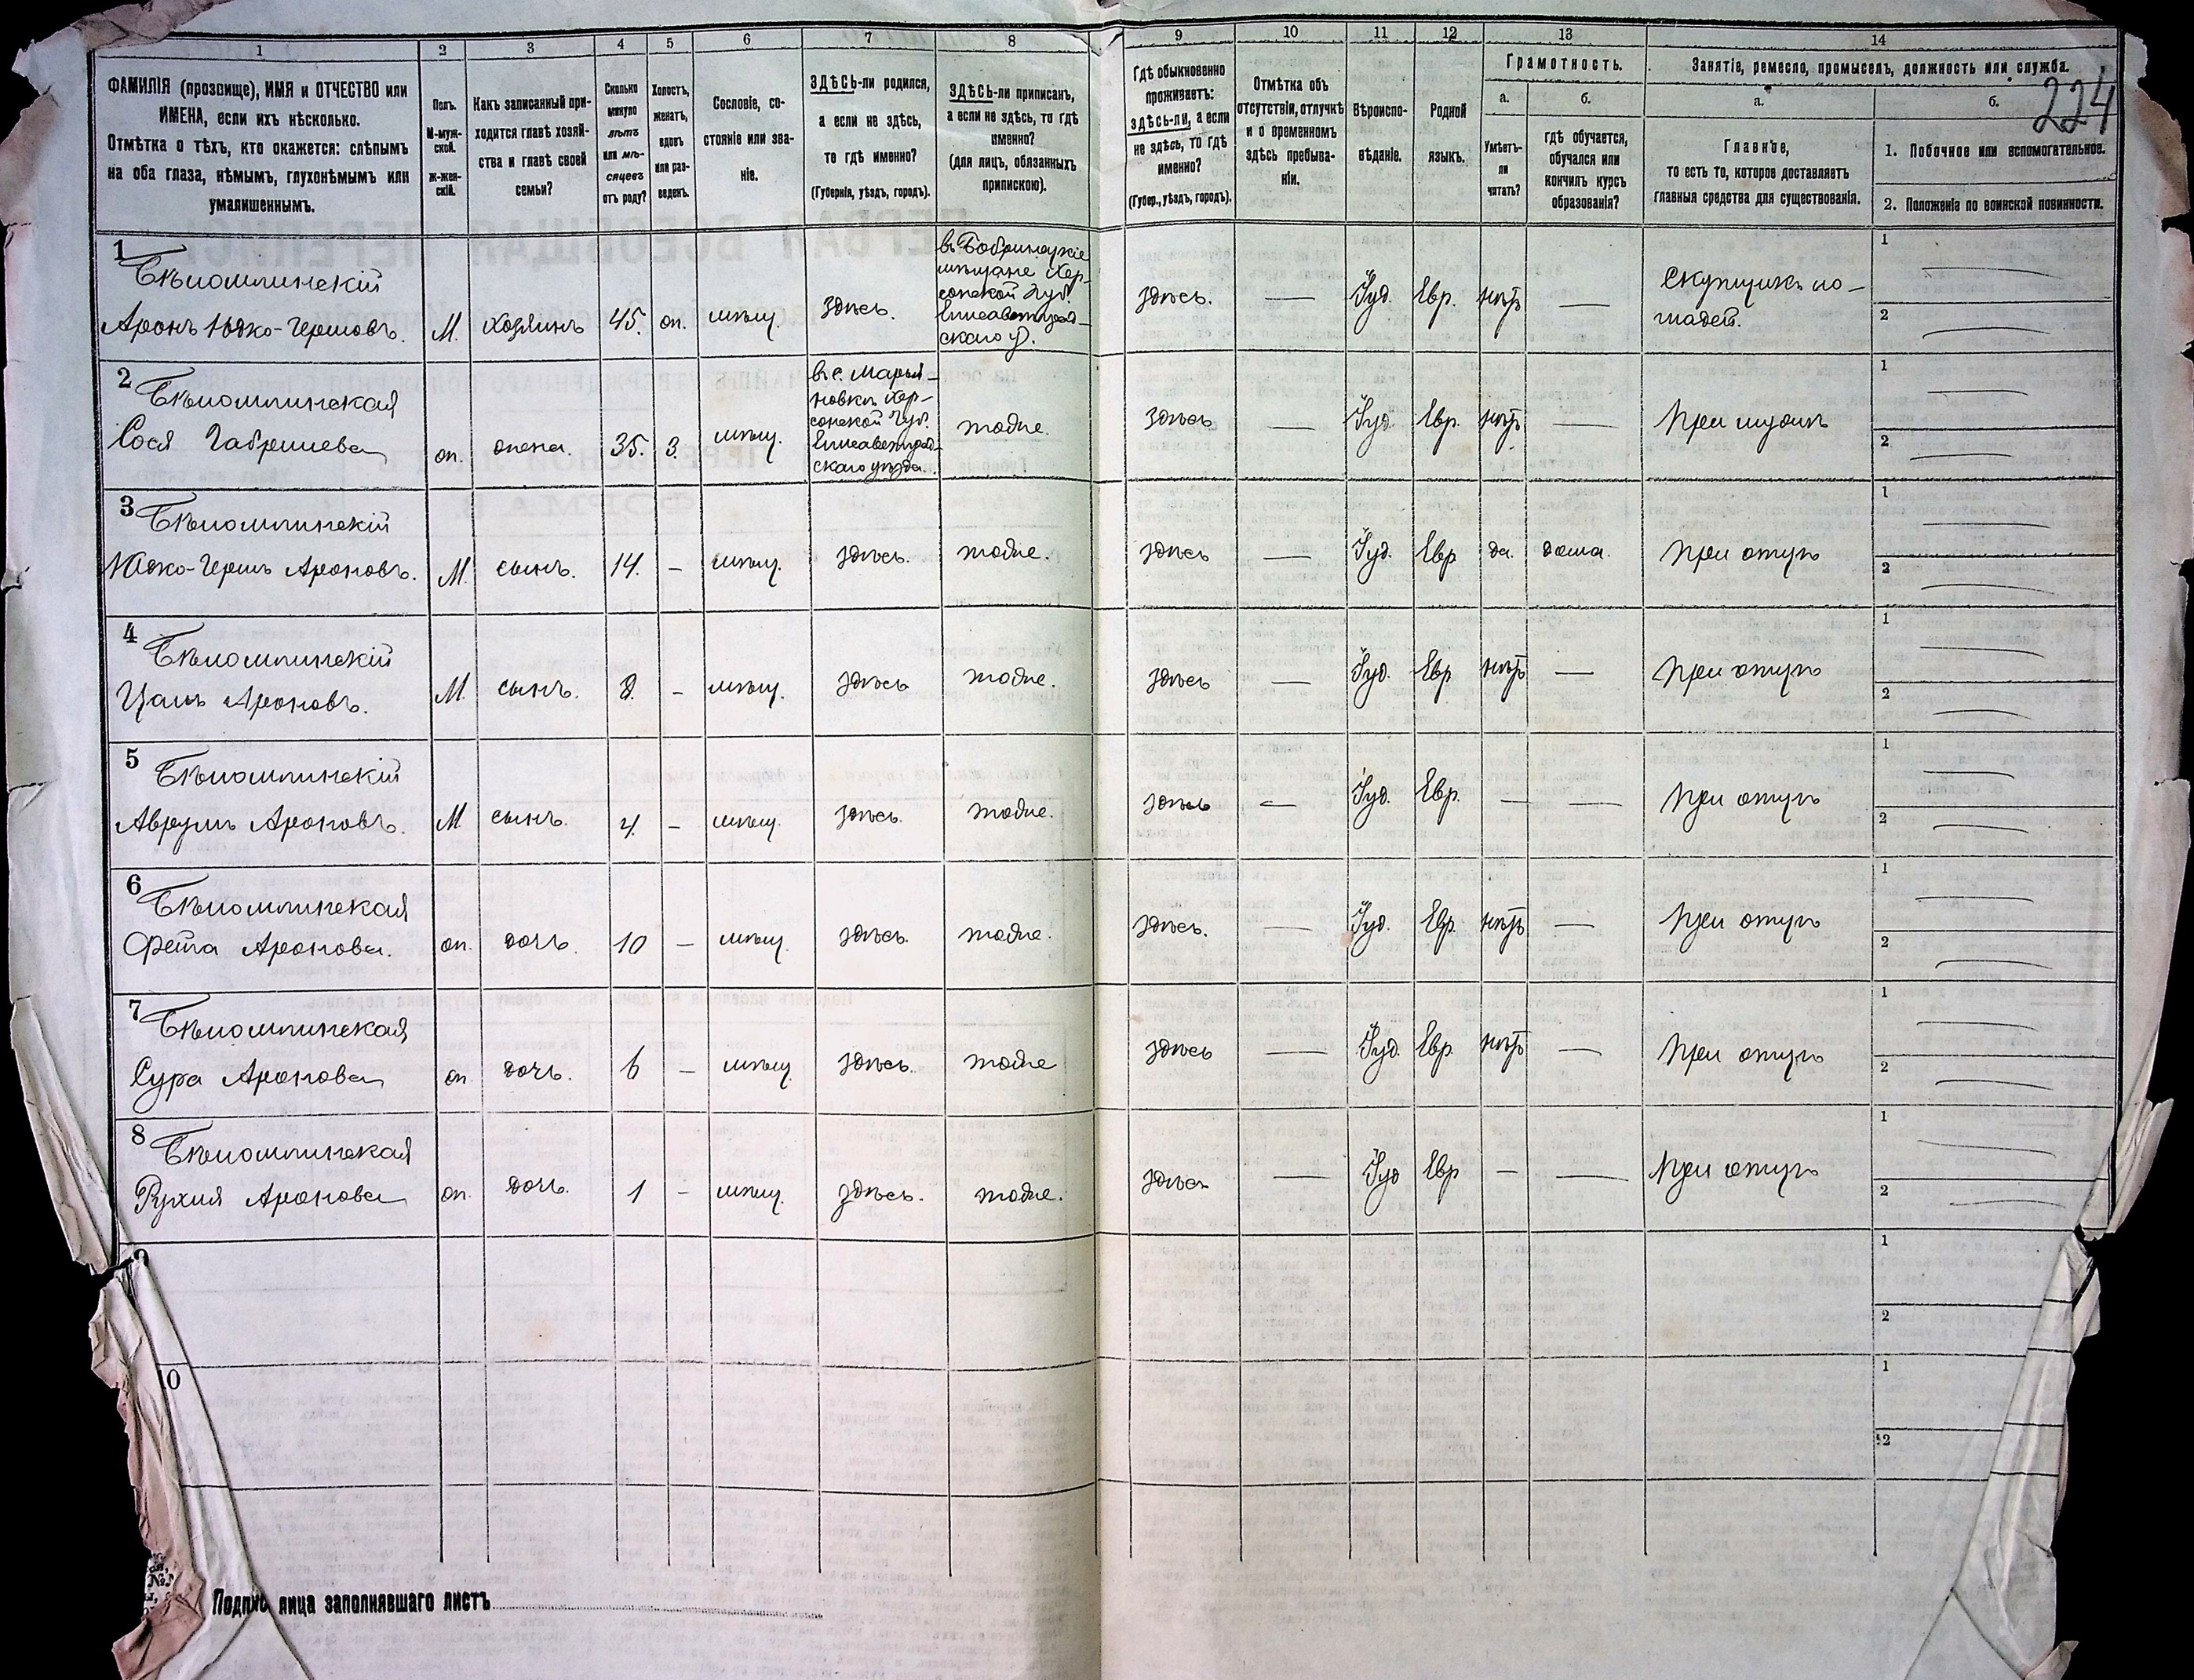 1 2 3 4 5 6 7 8 9 10 11 12 13 14
ФАМИЛІЯ (прозвище), ИМЯ и ОТЧЕСТВО или
ИМЕНА, если ихъ нѣсколько.
Отмѣтка о тѣхъ, кто окажется: слѣпымъ
на оба глаза, нѣмымъ, глухонѣмымъ или
умалишеннымъ.
Полъ.
М-муж-
ской.
Ж-жен-
скій.
Какъ записанный при-
ходится главѣ хозяй-
ства и главѣ своей
семьи?
Сколько
минуло
лѣтъ
или мѣ-
сяцевъ
отъ роду?
Холостъ,
женатъ,
вдовъ
или раз-
веденъ.
Сословіе, со-
стояніе или зва-
ніе.
ЗДѢСЬ-ли родился,
а если не здѣсь,
то гдѣ именно?
(Губернія, уѣздъ, городъ).
ЗДѢСЬ-ли приписанъ,
а если не здѣсь, то гдѣ
именно?
(для лицъ, обязанныхъ
припискою).
Гдѣ обыкновенно
проживаетъ:
ЗДѢСЬ-ли, а если
не здѣсь, то гдѣ
именно?
(Губер., уѣздъ, городъ).
Отмѣтка объ
отсутствіи, отлучкѣ
и о временномъ
здѣсь пребыва-
ніи.
Вѣроиспо-
вѣданіе.
Родной
языкъ.
Грамотность.
а.
Умѣетъ-
ли
читать?
б.
Гдѣ обучается,
обучался или
кончилъ курсъ
образованія?
Занятіе, ремесло, промыселъ, должность или служба.
а.
Главное,
то есть то, которое доставляетъ
главныя средства для существованія.
б.
224
1. Побочное или вспомогательное.
2. Положеніе по воинской повинности.
1
Бѣломлинскій
Аронъ Юдко-Гершовъ.
М.
хозяинъ
45.
ж.
мѣщ.
здѣсь.
въ Бобринецкіе
мѣщане Хер-
сонской Губ.
Елисаветград-
скаго у.
здѣсь.
—
Іуд.
Евр.
нѣтъ
—
Скупщикъ ло-
шадей.
1
2
2
Бѣломлинская
Сося Габрилева
ж.
жена.
35.
З.
мѣщ.
въ с. Марья-
новкѣ Хер-
сонской Губ.
Елисаветград-
скаго уѣзда.
тоже.
здѣсь
—
Іуд.
Евр.
нѣтъ
—
при мужѣ
1
2
3
Бѣломлинскій
Юдко-Гершъ Ароновъ.
М.
сынъ.
14.
–
мѣщ.
здѣсь.
тоже.
здѣсь
—
Іуд.
Евр
да.
дома.
при отцѣ
1
2
4
Бѣломлинскій
Цаль Ароновъ.
М.
сынъ.
8.
–
мѣщ.
здѣсь
тоже.
здѣсь
—
Іуд.
Евр
нѣтъ
—
при отцѣ
1
2
5
Бѣломлинскій
Аврумъ Ароновъ.
М
сынъ.
4.
–
мѣщ.
здѣсь.
тоже.
здѣсь
—
Іуд.
Евр.
—
—
при отцѣ
1
2
6
Бѣломлинская
Фейга Аронова.
ж.
дочь.
10
–
мѣщ.
здѣсь.
тоже.
здѣсь.
—
Іуд.
Евр.
нѣтъ
—
при отцѣ
1
2
7
Бѣломлинская
Сура Аронова
ж
дочь.
6
–
мѣщ.
здѣсь.
тоже
здѣсь
—
Іуд.
Евр.
нѣтъ
—
при отцѣ
1
2
8
Бѣломлинская
Рухля Аронова
ж.
дочь.
1
–
мѣщ.
здѣсь.
тоже.
здѣсь
—
Іуд
Евр
–
—
при отцѣ
1
2
9
1
2
10
1
2
Подпись лица заполнявшаго листъ